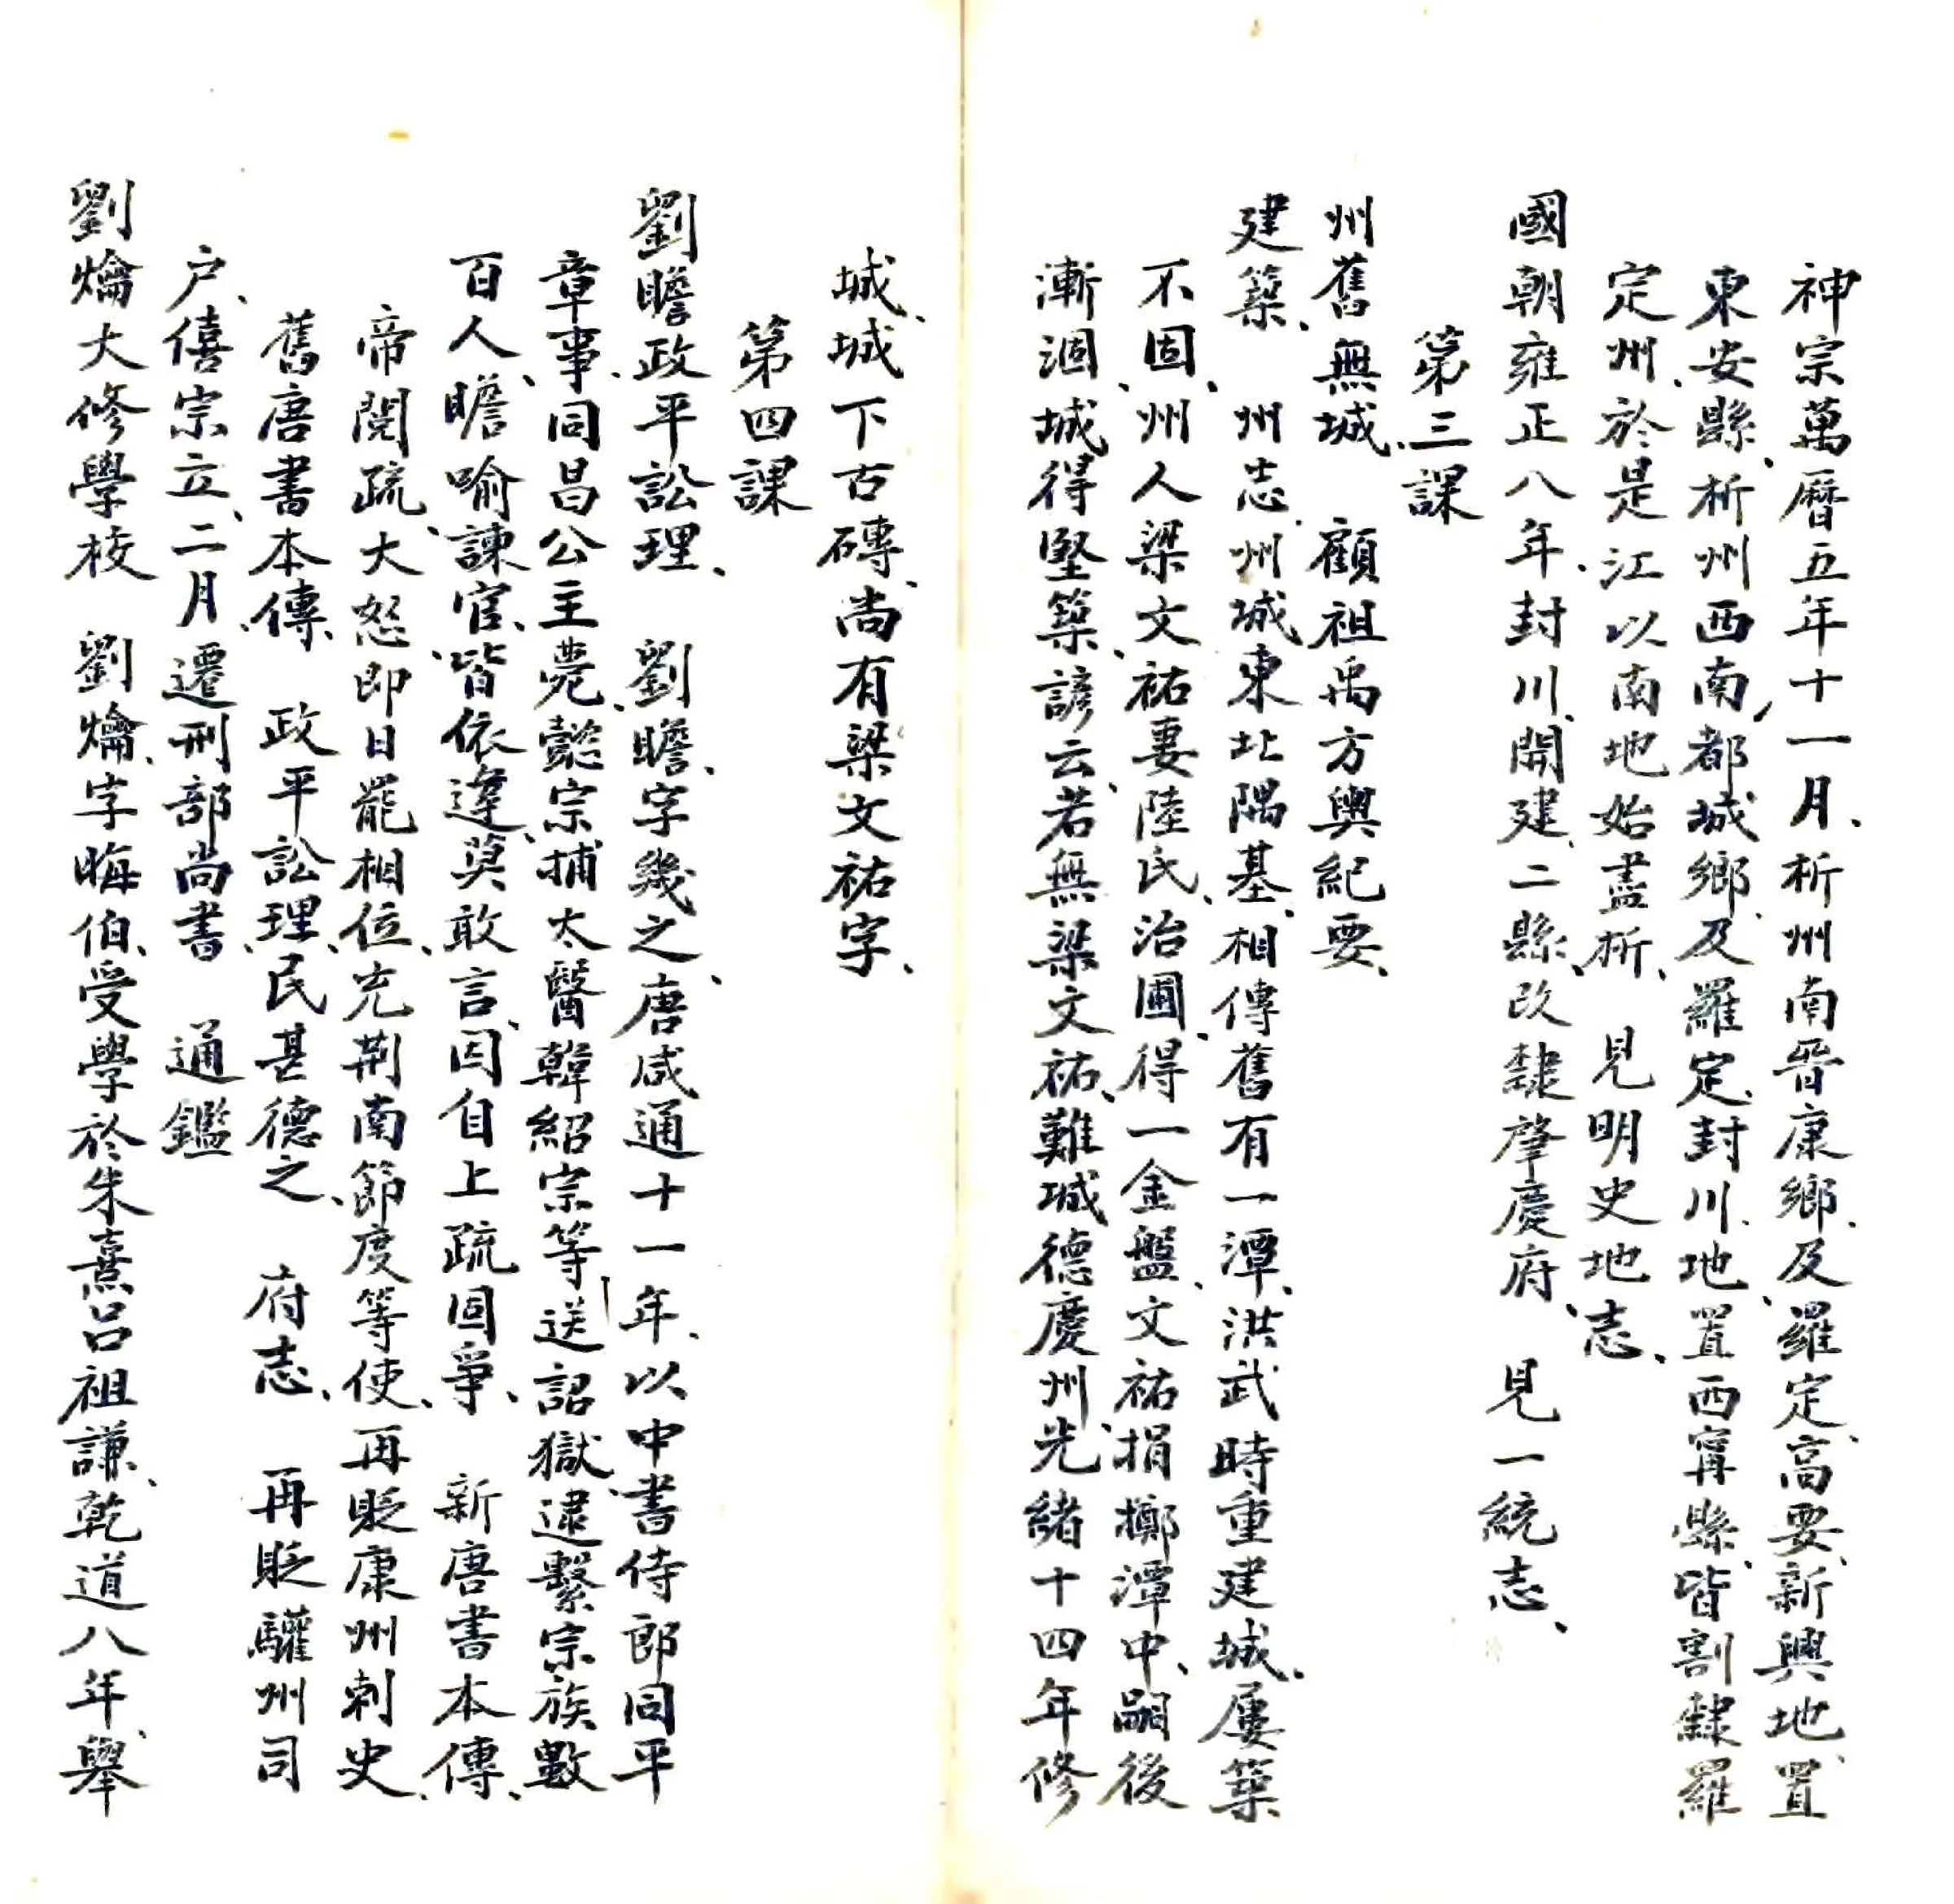 神宗萬曆五年十一月、析州南晉康鄉、及羅定、高要、新興地、置
東安縣、析州西南、都城鄉、及羅定、封川、地、置西寗縣、皆割隸羅
定州、於是江以南地始盡析、見明史地志、
國朝雍正八年、封川、開建、二縣、改隸肇慶府、見一統志、
第三課
州舊無城、顧祖禹方輿紀要、
建築、州志、州城東北隅基、相傳舊有一潭、洪武時重建城、屢築
不固、州人梁文祐妻陸氏、治圃、得一金盤、文祐、捐擲潭中、嗣後
漸涸、城得堅築、諺云、若無梁文祐、難城德慶州、光緒十四年修
城、城下古磚、尚有梁文祐字、
第四課
劉瞻政平訟理、劉瞻、字幾之、唐咸通十一年、以中書侍郎同平
章事、同昌公主薨、懿宗捕太醫韓紹宗等送詔獄、逮繫宗族數
百人、瞻喻諫官、皆依違、莫敢言、因自上疏固爭、新唐書本傳、
帝閱疏、大怒即日罷相位、充荆南節度等使、再貶康州刺史、
舊唐書本傳、政平訟理、民甚德之、府志、再貶驩州司
户、僖宗立、二月、遷刑部尚書、通鑑
劉爚大修學校 劉爚、字晦伯、受學於朱熹呂祖謙、乾道八年、舉